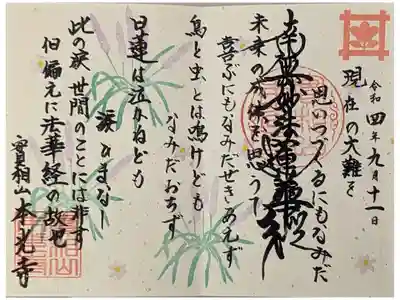 令和四年九月十一日
現在の大難を
思いつづくるにもなみだ
南無妙法蓮華経
未来の成仏を思うて
喜ぶにもなみだせきあえず
鳥と虫とは鳴けども
なみだおちず
日蓮は泣かねども
涙ひまなし
此の涙 世間のことには非ず
但偏えに法華経の故也
實相山 本光寺